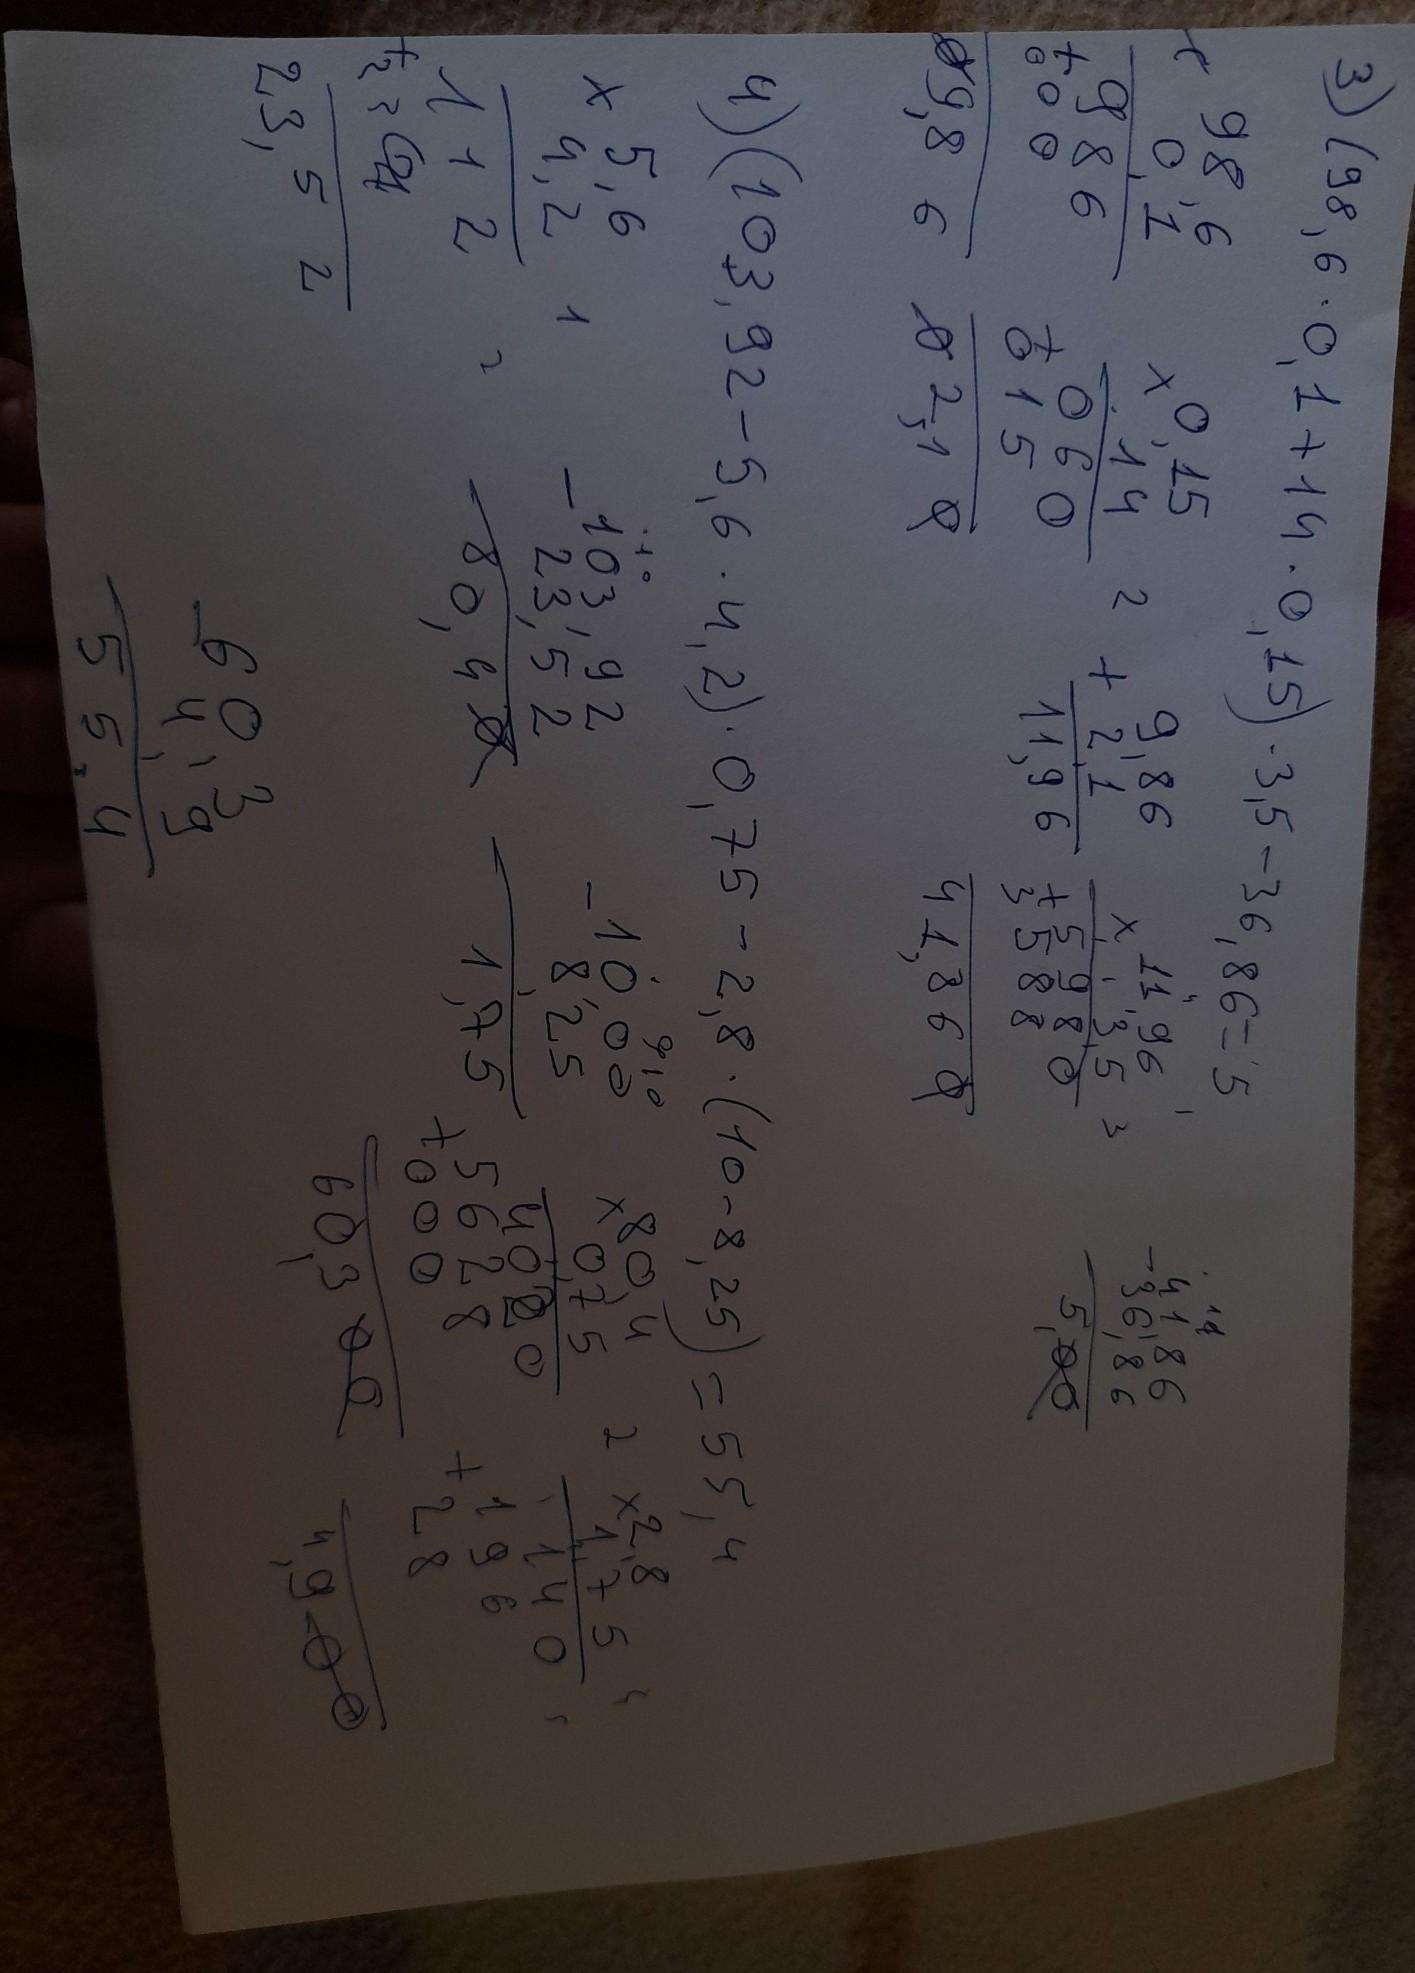 3) (98,6 · 0,1 + 14 · 0,15) · 3,5 - 36,86 = 5
98,6
0,1
986
+000
09,86
x 0,15
14
060
+015
02,10
2
+ 9,86
2,1
11,96
x 11,96
3,5
5980
+3588
41,860
3
- 41,86
36,86
5,00
4) (103,92 - 5,6 · 4,2) · 0,75 - 2,8 · (10 - 8,25) = 55,4
x 5,6
4,2
112
+224
23,52
1
2
- 103,92
23,52
80,40
- 10,00
8,25
1,75
x 80,4
0,75
4020
+5628
000
60,300
2
x 2,8
1,75
140
+196
28
4,900
- 60,3
4,9
55,4